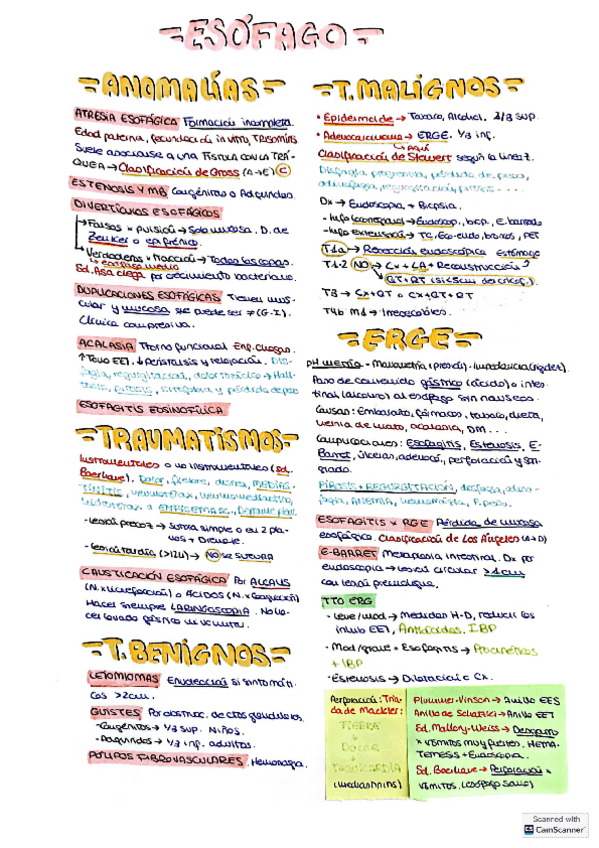 ESÓFAGO
ANOMALÍAS
ATRESIA ESOFÁGICA Formación incompleta.
Edad paterna, fecundación in vitro, Trisomías
Suele asociarse a una Fístula con la TRÁ-
QUEA → Clasificación de Gross (A→E) C
ESTENOSIS Y MB Congénitas o Adquiridas.
DIVERTÍCULOS ESOFÁGICOS
→ Falsos x pulsión → Solo mucosa. D. de
Zenker o epifrénico.
→ Verdaderos x Tracción → Todas las capas.
↳ esófago medio
Sd. Asa ciega por crecimiento bacteriano.
DUPLICACIONES ESOFÁGICAS Tienen mus-
cular y mucosa que puede ser ≠ (G-I).
Clínica compresiva.
ACALASIA Ttorno funcional Enf. Chagas.
↑ Tono EEI. ↓ Peristalsis y relajación. Dis-
fagia, regurgitación, dolor torácico → Hali-
tosis, pirosis, sitofobia y pérdida de peso
ESOFAGITIS EOSINOFÍLICA
TRAUMATISMOS
Instrumentales o no instrumentales (Sd.
Boerhave). Dolor, fiebre, disnea, MEDIAS-
TINITIS,
- Lesión precoz → Sutura simple o en 2 pla-
nos + Drenaje.
- Lesión tardía (>12h) → NO se SUTURA
CAUSTICACIÓN ESOFÁGICA Por ÁLCALIS
(N. x licuefacción) o ÁCIDOS (N. x coagulación)
Hacer siempre LARINGOSCOPIA. No ha-
cer lavado gástrico ni vomitar.
T. BENIGNOS
LEIOMIOMAS Enucleación si sintomáti-
cos >2cm.
QUISTES Por obstruc. de ctos glandulares.
- Congénitos → 1/3 sup. Niños.
- Adquiridos → 1/3 inf. adultos.
PÓLIPOS FIBROVASCULARES. Hemorragia.
T. MALIGNOS
• Epidermoide → Tabaco, Alcohol. 2/3 sup.
• Adenocarcinoma → ERGE. 1/3 inf.
↳ aquí
Clasificación de Siewert según la línea Z.
Disfagia progresiva, pérdida de peso,
odinofagia, regurgitación, pirosis...
Dx → Endoscopia + Biopsia.
- Info locorregional → Endoscop., bcp, E. baritado
- Info extensión → TC, Eco-endo, bronos, PET
T1a → Resección endoscópica Estómago
T1-2 N0 → Cx + LA + Reconstrucción
QT + RT (si <5cm de cricof.)
T3 → Cx + QT o Cx + QT + RT
T4b M1 → Irresecables.
ERGE
pH metría - Manometría (presión) - Impedancia
Paso de contenido gástrico (ácido) o intes-
tinal (alcalino) al esófago sin náuseas.
Causas: Embarazo, fármacos, tabaco, dieta,
hernia de hiato, acalasia, DM...
Complicaciones: Esofagitis, Estenosis, E-
Barret, úlceras, adenoca., perforación y san-
grado.
PIROSIS + REGURGITACIÓN, disfagia, odino-
fagia, ANEMIA, hematemesis, P. peso.
ESOFAGITIS x RGE Pérdida de mucosa
esofágica. Clasificación de Los Ángeles (A→D)
E-BARRET Metaplasia intestinal. Dx por
endoscopia → Lesión circular >1cm
con lesión premaligna.
TTO ERG
- Leve/mod → Medidas H-D, reducir los
inhib EEI, Antiácidos, IBP
- Mod/grave + Esofagitis → Procinéticos
+ IBP
- Estenosis → Dilatación o Cx.
Perforación: Tría-
da de Mackler:
FIEBRE
+
DOLOR
+
TAQUICARDIA
(Mediastinitis)
Plummer-Vinson → Anillo EES
Anillo de Schatzki → Anillo EEI
Sd. Mallory-Weiss → Desgarro
x vómitos muy fuertes. HEMA-
TEMESIS + Endoscopia.
Sd. Boerhave → Perforación x
vómitos. (esófago sano)
Scanned with
CS CamScanner